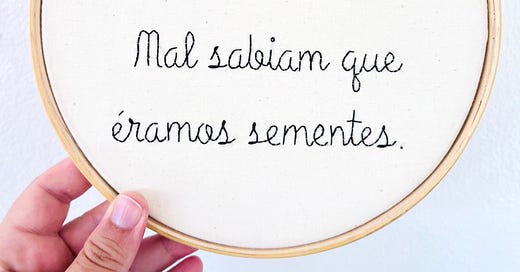 Mal sabiam que
éramos sementes.